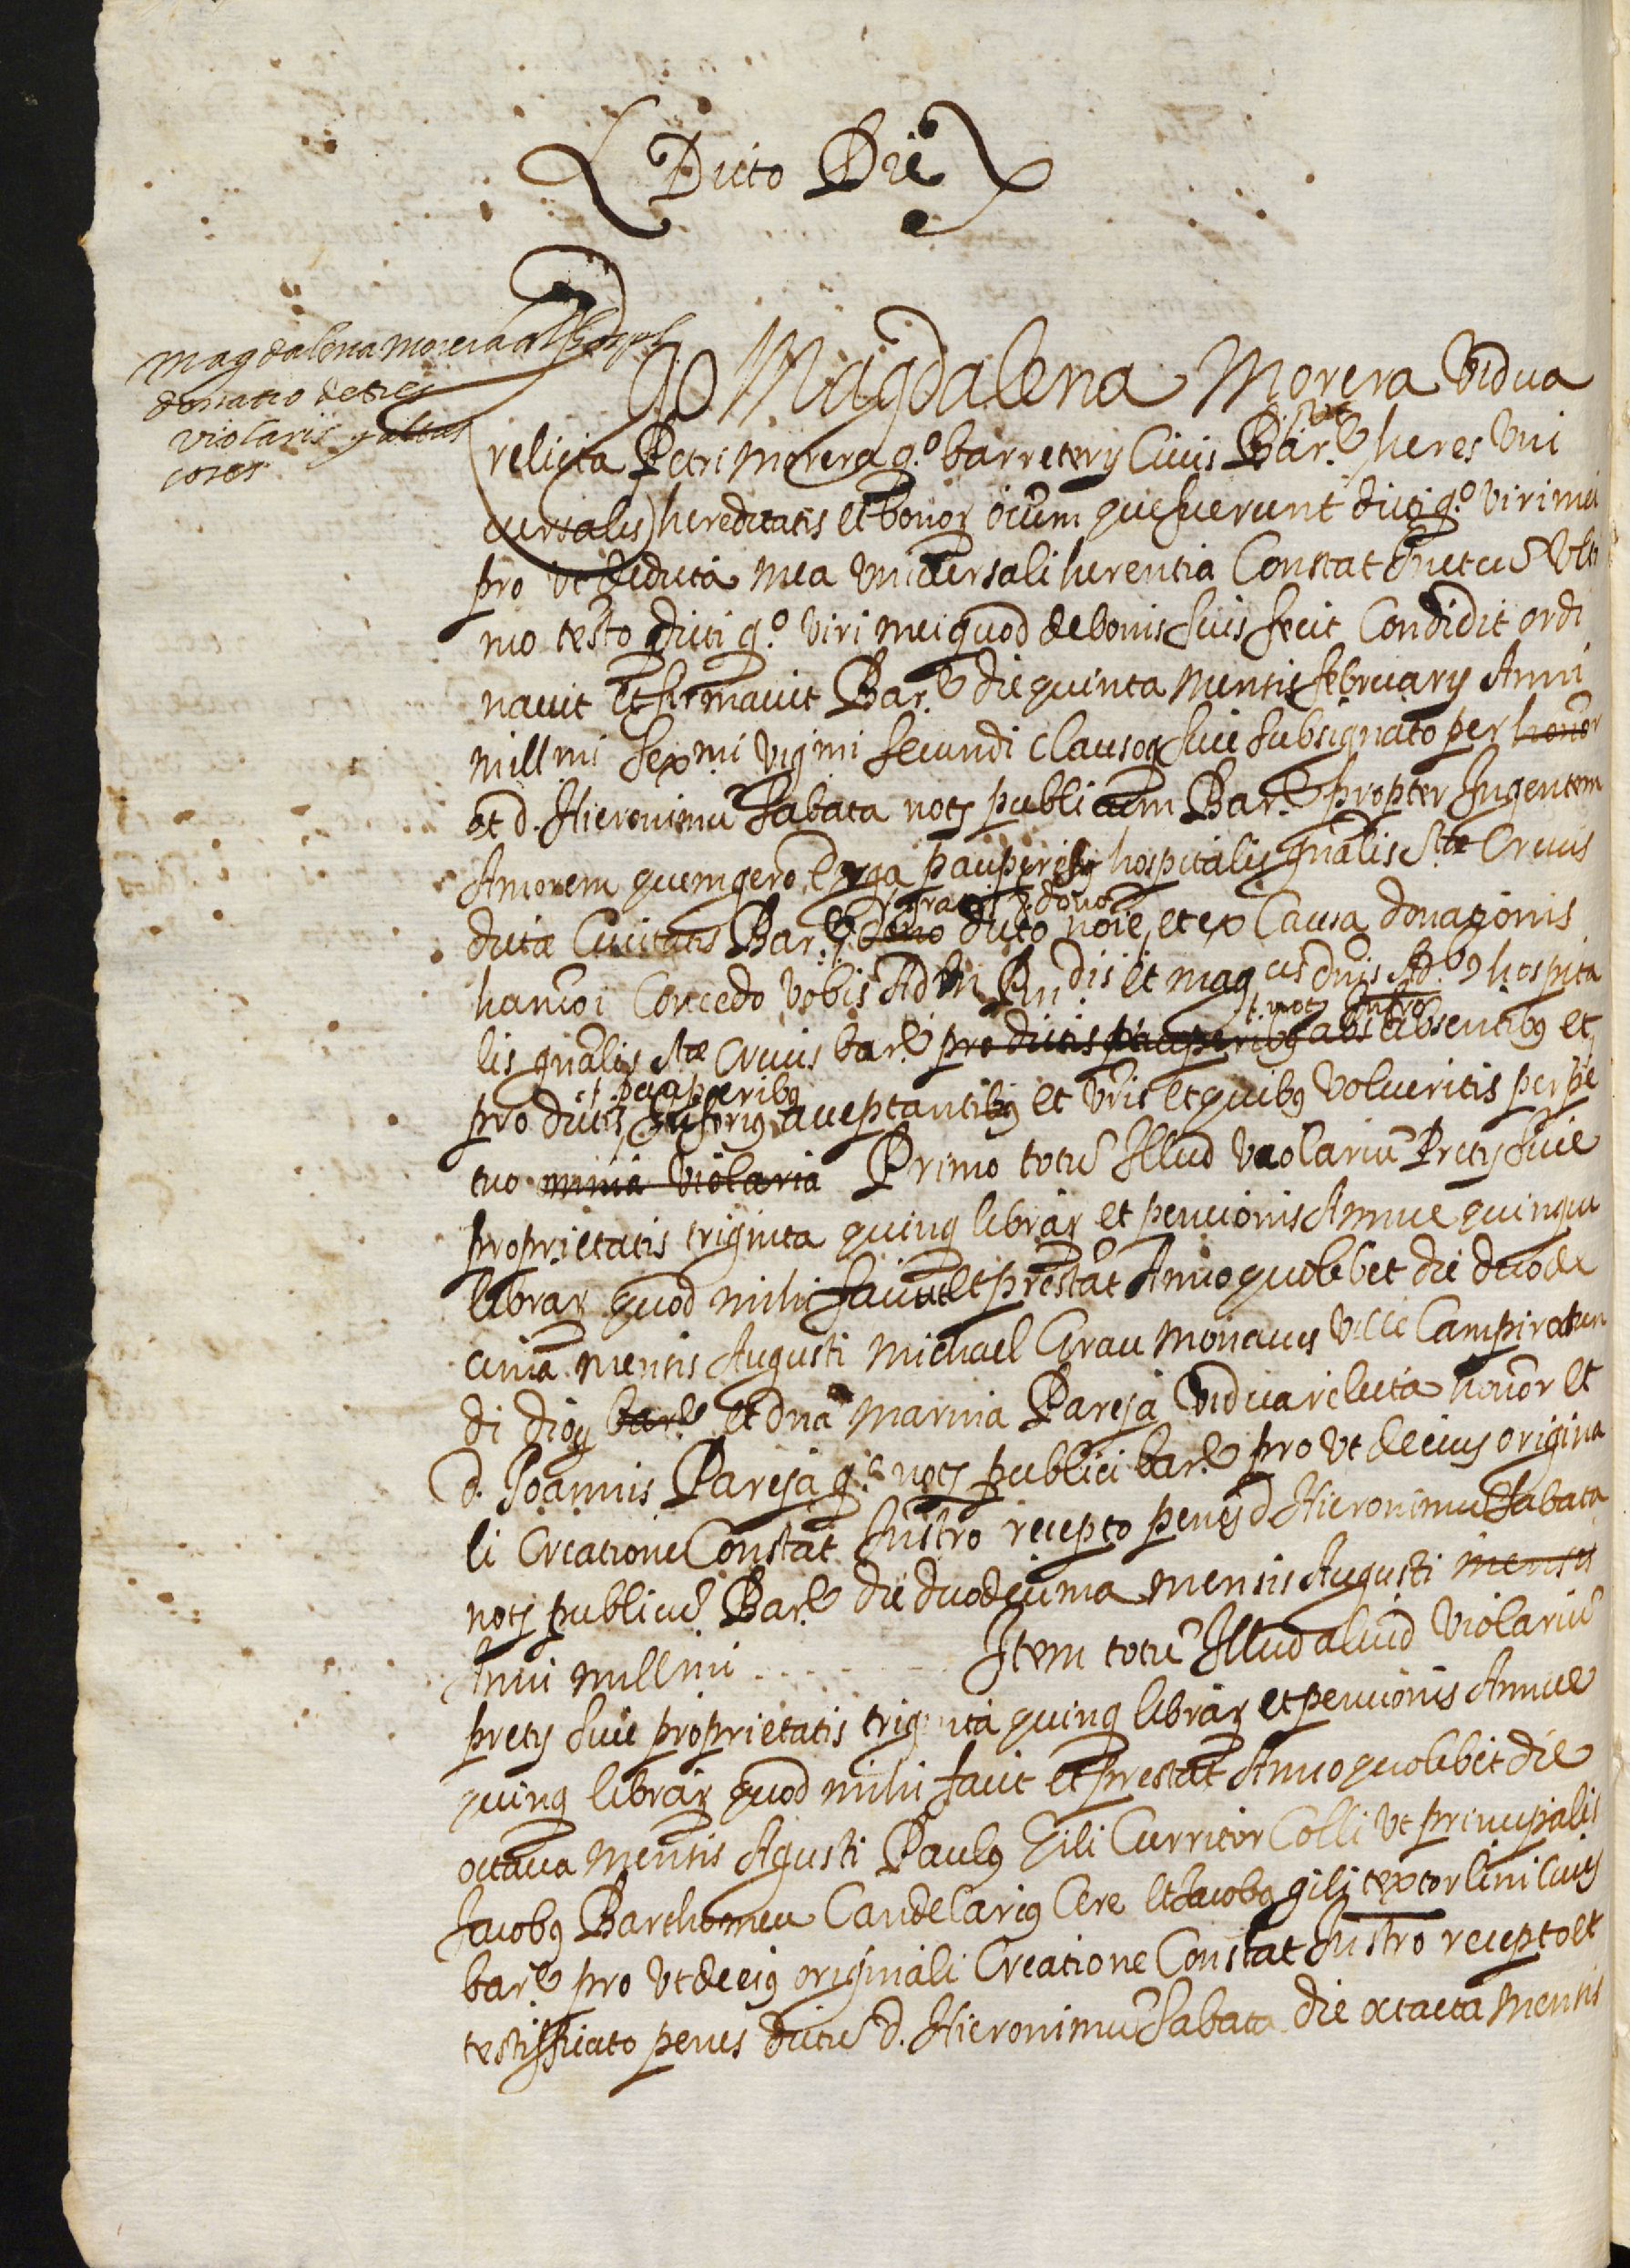 Dicto Die
Magdalena Morera al
donatio de tres
violaris y altres
coses
Ego Magdalena Morera Vidua
relicta Petri Morera q.º barretery Civis Bar.e heres Uni
versalis hereditatis et bonor oium que fuerunt dicti q.º viri mei
pro ut de dicta mea universali herentia Constat
mo testo dicti q.º viri mei quod de bonis suis fecit Condidit ordi
navit et firmavit Bar.e die quinta mensis february Anni
millmi sexmi vigmi secundi clausoq sive subsignato per honor
et d. Hieronimu Sabata nots publicum Bar.e propter Ingentem
Amorem quem gero Erga pauperes hospitalis gnalis Stæ Crucis
gratis dono
dictæ Civitatis Bar.e dono dicto noie, et ex Causa donationis
Concedo vobis Adm Rndis et mag cis dnis Ad.bg hospita
lis gnalis Stæ Crucis bar.e pro dictis pauperibg abs absentibg et
pauperibg
pro dictis Inferius acceptantibg et vris et quibg volueritis perpe
tuo omnia violaria Primo totu Illud violariu Prety sive
proprietatis triginta quinq librar et pencionis Annue quinque
librar quod mihi faciunt et prestat Anno quolibet die duode
cima mensis Augusti Michael Grau Monacus ville Campirotun
di diog bar.e et dna Marina Pareja vidua relicta honor et
d. Joannis Pareja q.º nots publici bar.e pro ut de eius origina
li Creatione Constat Instro recepto penes d Hieronimu Sabata
nots publicu Bar.e die duodecima mensis Augusti mensis
Anni millmi . . . . . . Item totu Illud aliud violariu
prety sive proprietatis triginta quinq librar et pencionis Annue
quinq librar quod mihi facit et prestat Anno quolibet die
octava mensis Agusti Paulg Gili Curritor Colli ut principalis
Jacobg Barthomeu Candelarig Cere et Jacobg gili textor lini Civis
bar.e pro ut de eig originali Creatione Constat Instro recepto et
testifficato penes dictu d. Hieronimu Sabata die octava mensis